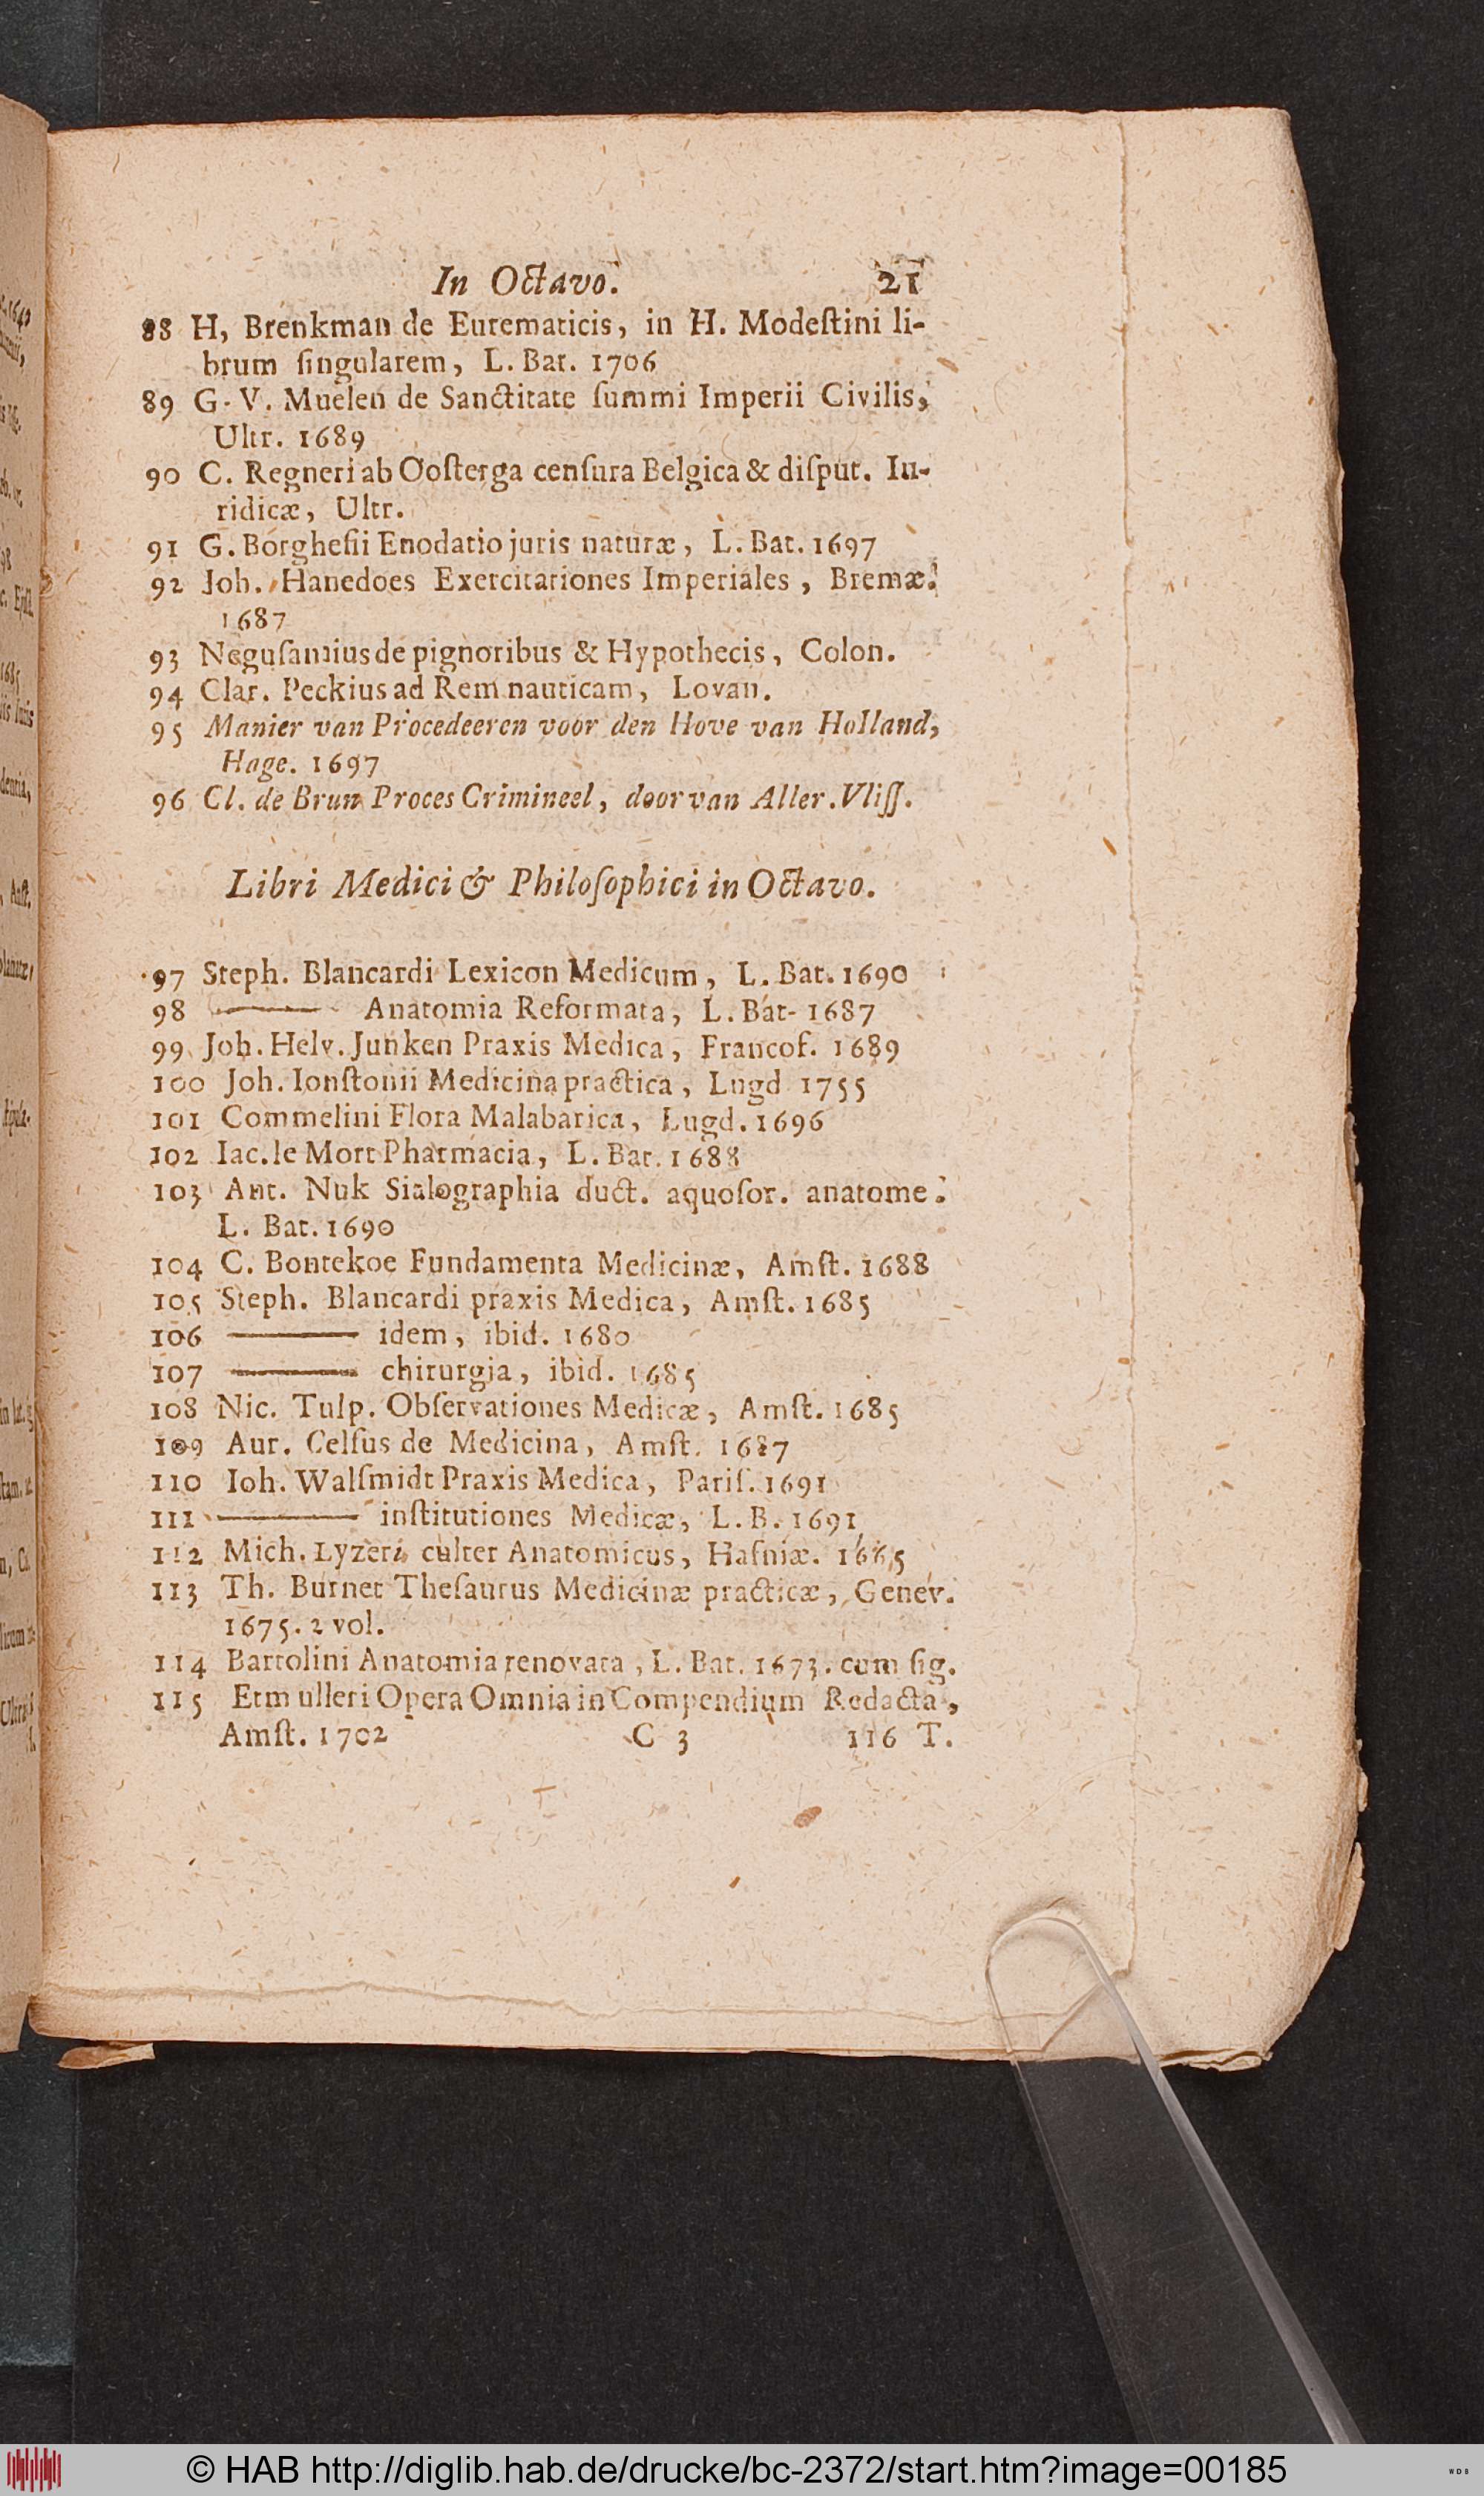 In Octavo. 21
88 H, Brenkman de Eurematicis, in H. Modeſtini li-
brum ſingularem, L. Bat. 1706
89 G. V. Muelen de Sanctitate ſummi Imperii Civilis,
Ultr. 1689
90 C. Regneri ab Ooſterga cenſura Belgica & diſput. Iu-
ridicæ, Ultr.
91 G. Borgheſii Enodatio juris naturæ, L. Bat. 1697
92 Joh. Hanedoes Exercitationes Imperiales, Bremæ.
1687
93 Neguſantius de pignoribus & Hypothecis, Colon.
94 Clar. Peckius ad Rem nauticam, Lovan.
95 Manier van Procedeeren voor den Hove van Holland,
Hage. 1697
96 Cl. de Brun Proces Crimineel, door van Aller. Vliſſ.
Libri Medici & Philoſophici in Octavo.
97 Steph. Blancardi Lexicon Medicum, L. Bat. 1690
98 ——— Anatomia Reformata, L. Bat- 1687
99 Joh. Helv. Junken Praxis Medica, Francof. 1689
100 Joh. Ionſtonii Medicina practica, Lugd 1755
101 Commelini Flora Malabarica, Lugd. 1696
102 Iac. le Mort Pharmacia, L. Bat. 1688
103 Ant. Nuk Sialographia duct. aquoſor. anatome.
L. Bat. 1690
104 C. Bontekoe Fundamenta Medicinæ, Amſt. 1688
105 Steph. Blancardi praxis Medica, Amſt. 1685
106 ——— idem, ibid. 1680
107 ——— chirurgia, ibid. 1685
108 Nic. Tulp. Obſervationes Medicæ, Amſt. 1685
109 Aur. Celſus de Medicina, Amſt. 1687
110 Ioh. Walſmidt Praxis Medica, Pariſ. 1691
111 ——— inſtitutiones Medicæ, L. B. 1691
112 Mich. Lyzeri culter Anatomicus, Hafniæ. 1665
113 Th. Burnet Theſaurus Medicinæ practicæ, Genev.
1675. 2 vol.
114 Bartolini Anatomia renovata, L. Bat. 1673. cum fig.
115 Etmulleri Opera Omnia in Compendium Redacta,
Amſt. 1702 C 3 116 T.
© HAB http://diglib.hab.de/drucke/bc-2372/start.htm?image=00185